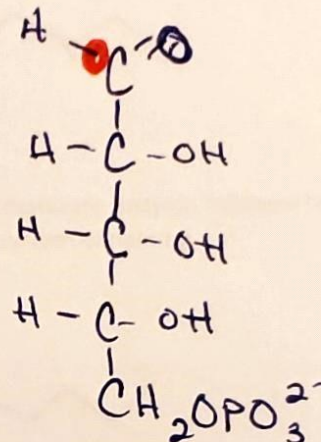 H
O C = O
H - C - OH
H - C - OH
H - C - OH
CH2OPO3 2-